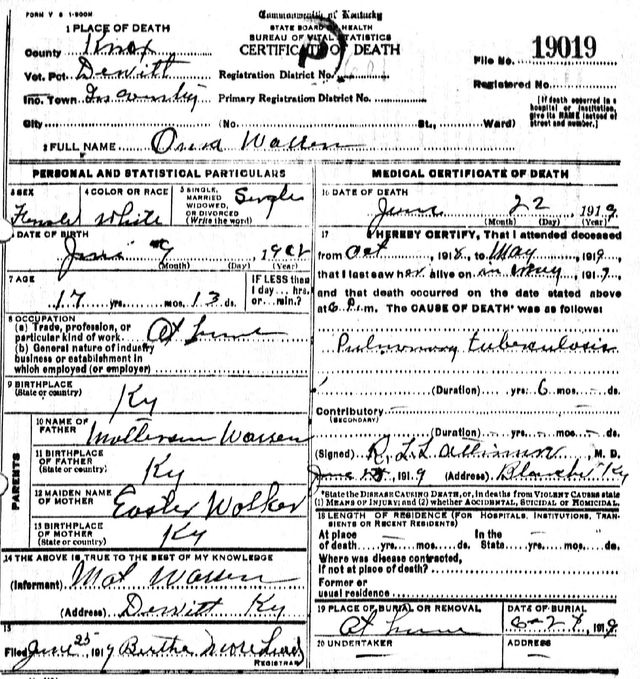 FORM V S 1-500M
Commonwealth of Kentucky
STATE BOARD OF HEALTH
BUREAU OF VITAL STATISTICS
CERTIFICATE OF DEATH
1 PLACE OF DEATH
County Knox
Vot. Pct. Dewitt
Inc. Town
City (No. St., Ward)
Registration District No.
Primary Registration District No.
File No. 19019
Registered No.
[If death occurred in a hospital or institution, give its NAME instead of street and number.]
2 FULL NAME Warren
PERSONAL AND STATISTICAL PARTICULARS
3 SEX Female
4 COLOR OR RACE White
5 SINGLE, MARRIED WIDOWED, OR DIVORCED (Write the word) Single
6 DATE OF BIRTH
June 9 1902
(Month) (Day) (Year)
7 AGE
17 yrs. mos. 13 ds.
IF LESS than 1 day... hrs. or... min.?
8 OCCUPATION
(a) Trade, profession, or particular kind of work At home
(b) General nature of industry business or establishment in which employed (or employer)
9 BIRTHPLACE (State or country) Ky
PARENTS
10 NAME OF FATHER Warren
11 BIRTHPLACE OF FATHER (State or country) Ky
12 MAIDEN NAME OF MOTHER Easter Walker
13 BIRTHPLACE OF MOTHER (State or country) Ky
14 THE ABOVE IS TRUE TO THE BEST OF MY KNOWLEDGE
(Informant) Mat Warren
(Address) Dewitt Ky
15
Filed June 25 1919 Bertha
REGISTRAR
MEDICAL CERTIFICATE OF DEATH
16 DATE OF DEATH
June 22 1919
(Month) (Day) (Year)
17 I HEREBY CERTIFY, That I attended deceased
from Oct 1918, to May 1919
that I last saw her alive on in May 1919
and that death occurred on the date stated above
at 6 P.m. The CAUSE OF DEATH* was as follows:
Pulmonary tuberculosis
(Duration) yrs. 6 mos. ds.
Contributory
(SECONDARY)
(Duration) yrs. mos. ds.
(Signed) M. D.
June 25, 1919 (Address) Blanche Ky
*State the DISEASE CAUSING DEATH, or, in deaths from VIOLENT CAUSES state (1) MEANS OF INJURY; and (2) whether ACCIDENTAL, SUICIDAL or HOMICIDAL.
18 LENGTH OF RESIDENCE (FOR HOSPITALS, INSTITUTIONS, TRANSIENTS OR RECENT RESIDENTS)
At place of death yrs. mos. ds. In the State yrs. mos. ds.
Where was disease contracted, if not at place of death?
Former or usual residence
19 PLACE OF BURIAL OR REMOVAL At home
DATE OF BURIAL 1919
20 UNDERTAKER
ADDRESS